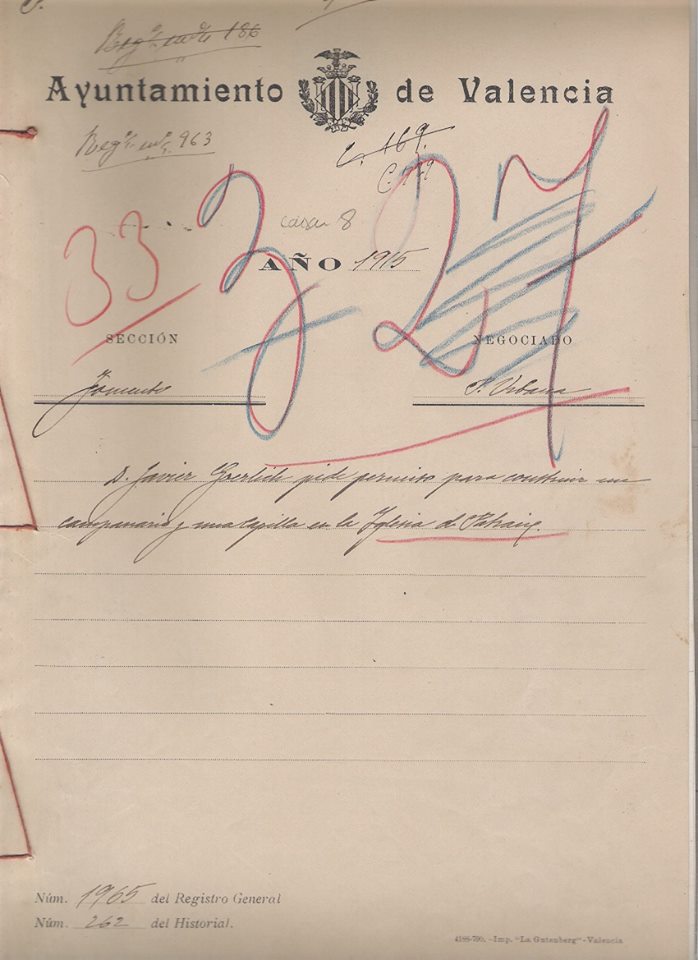 Regº. en 186
Ayuntamiento de Valencia
Regº. 963
C. 169.
C. 169
33
3
27
casa 8
AÑO 1915
SECCIÓN
NEGOCIADO
Fomento
P. Urbana
D. Javier Goerlich pide permiso para construir un
campanario y una capilla en la Iglesia de Patraix.
Núm. 1965 del Registro General
Núm. 262 del Historial.
4188-790. -Imp. "La Gutenberg"-Valencia